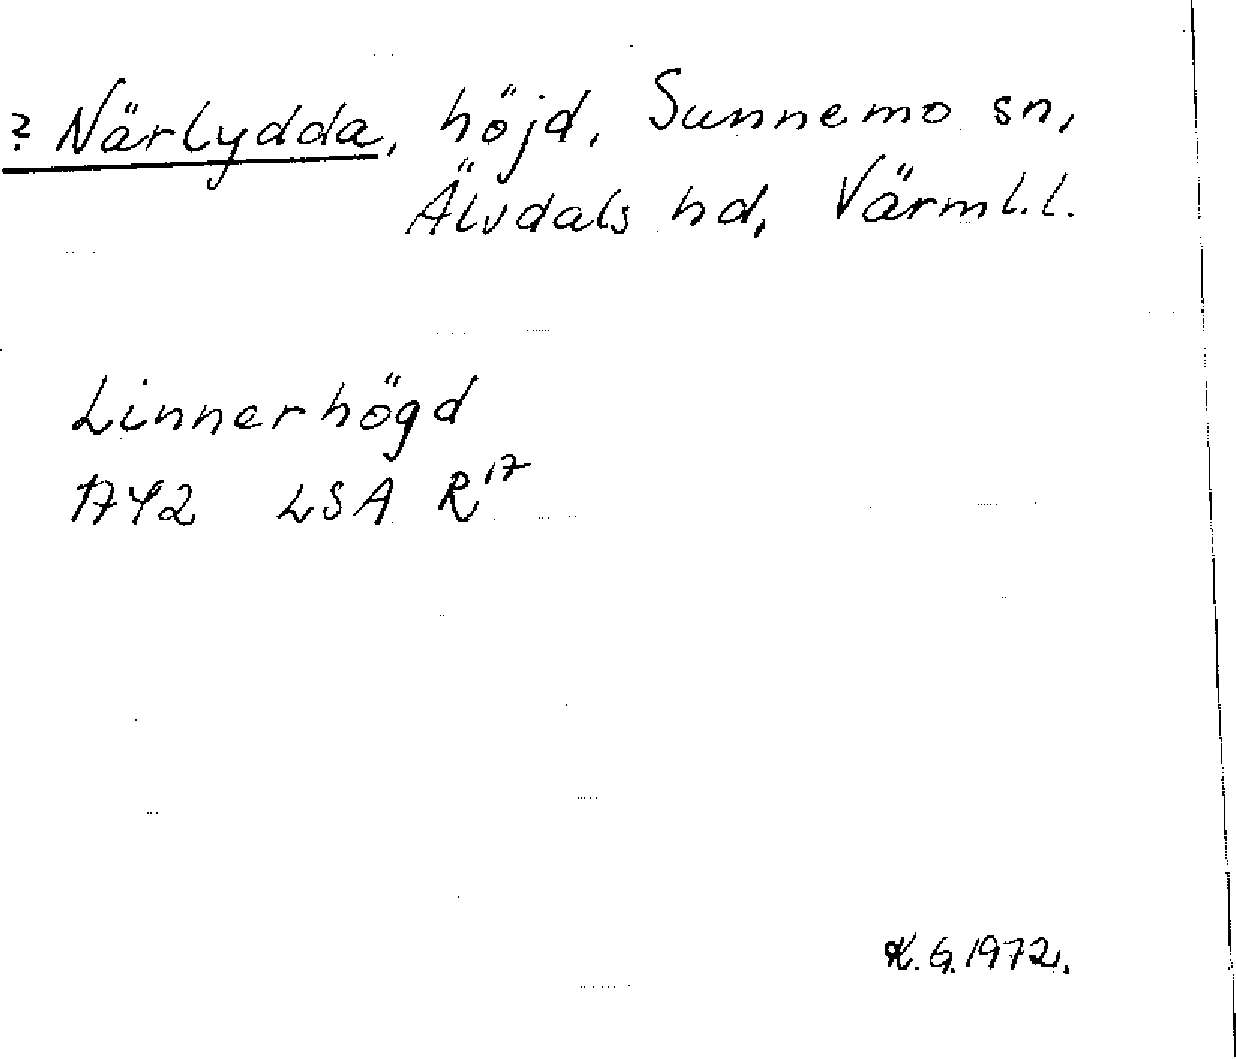 ? Närlydda, höjd, Sunnemo sn,
Älvdals hd, Värml.l.
Linnerhögd
1742 LSA R17
K.G. 1972.